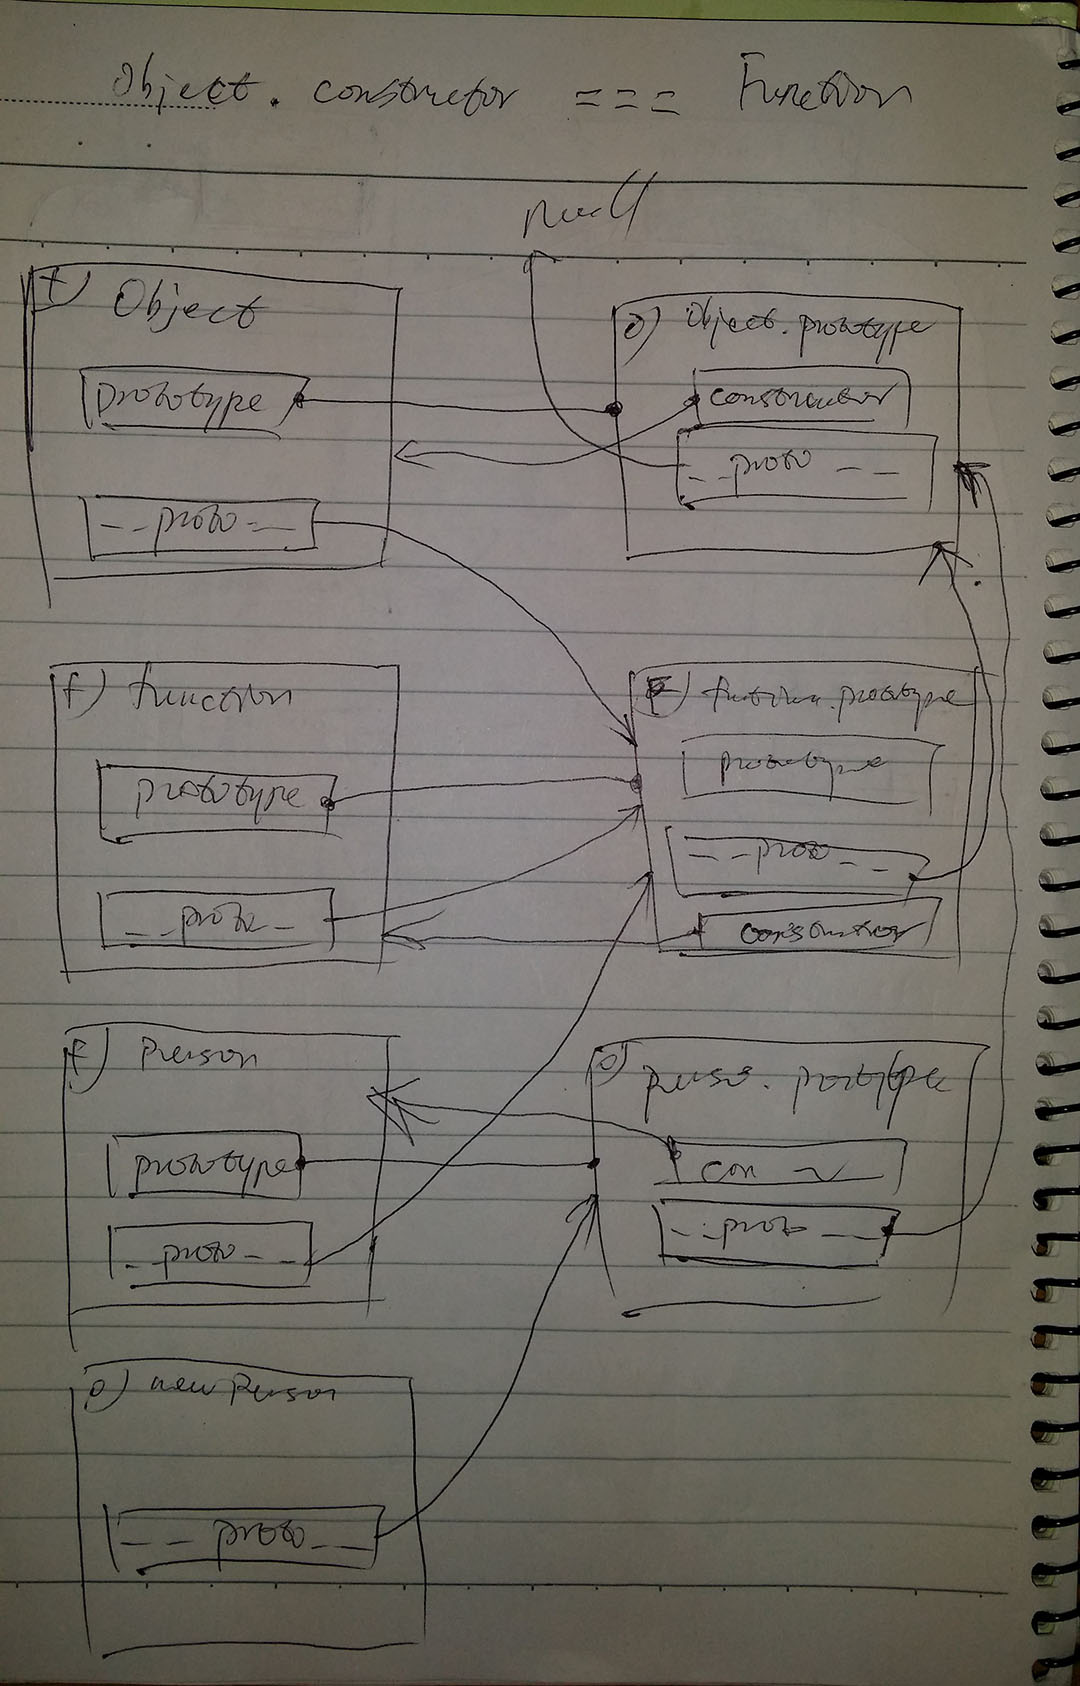 Object. constructor === Function
null
f) Object
prototype
__proto__
o) Object.prototype
constructor
__proto__
f) function
prototype
__proto_
F) function.prototype
prototype
__proto__
constructor
f) Person
prototype
__proto__
o) perso. prototype
con
__proto__
o) new Person
__proto__